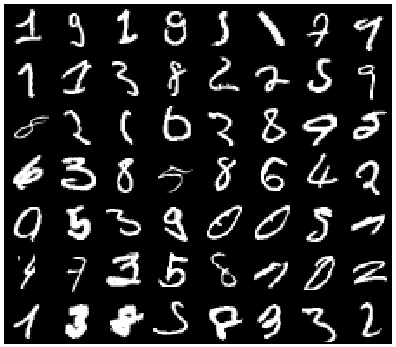 1 9 1 8 1 7 9
1 1 3 8 2 2 5 9
8 2 1 6 2 8 9 5
6 3 8 5 8 6 4 2
0 5 3 9 0 0 5
7 3 5 8 0 2
1 3 8 5 8 9 3 2